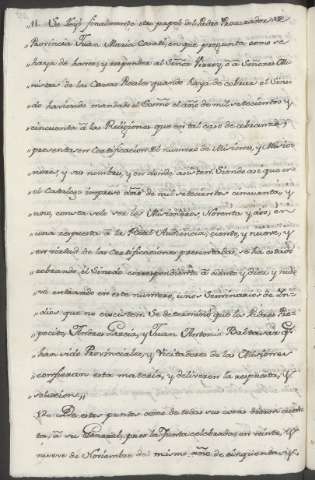 11. Se leyó finalmente otro papel del Padre Procurador de
Provincia Juan Maria Casati, en que pregunta como se
haya de haver, y responder al Señor Virrey, ò à Señores Mi-
nistros de las Caxas Reales quando haya de cobrar el Sinodo
haviendo mandado el Govierno el año de mil setecientos y
cinquenta à las Religiones que en tal caso de cobranza
presenten Certificacion del numero de Misiones, y Misio-
neros, y sus nombres, y en donde assisten. Siendo assi que en
el Catalogo impreso año de mil setecientos cinquenta, y
uno, consta solo ser los Misioneros Noventa y dos, en
una respuesta à la Real Audiencia, ciento, y nueve, y
en virtud de las Certificaciones presentadas, se ha estado
cobrando el Sinodo correspondiente à ciento y diez, y
entrando en este numero, unos Seminarios de In-
dios que no existen. Se determinó que los Padres
Garcia, y Juan Antonio Baltasar que
han sido Provinciales, y Visitadores de las Misiones
confieran esta materia, y deliveren la respuesta, y
solucion.
12. De estos puntos como de todos sus casos dieron cuen-
ta, à su General, por la Junta celebrada en veinte, y
nueve de Noviembre del mismo año de cinquenta, y